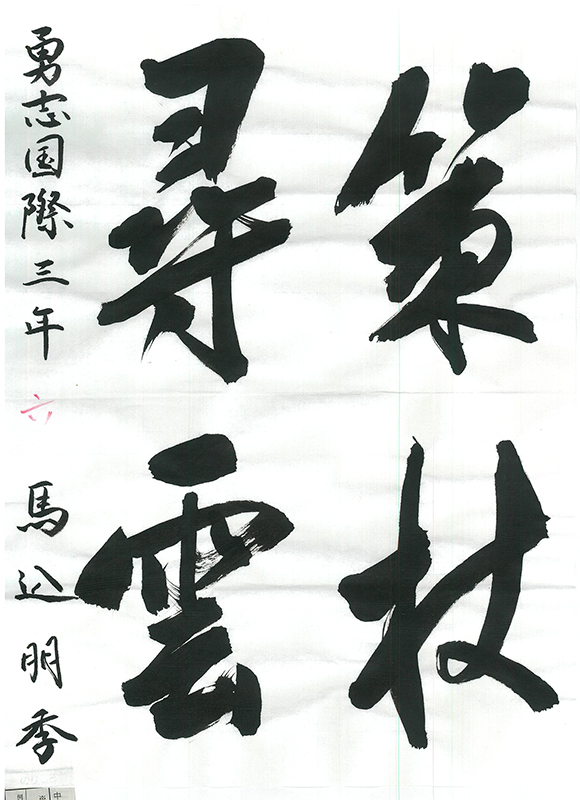 策杖
尋雲
勇志国際三年 六 馬込明季